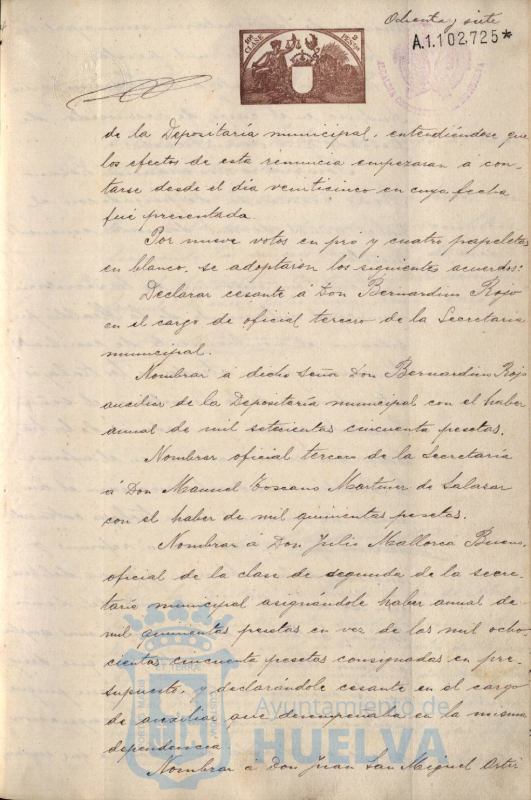 Ochenta y siete
10ª CLASE 2 PESETAS
A.1.102.725*
de la Depositaría municipal, entendiéndose que
los efectos de esta renuncia empezaran á con-
tarse desde el dia veinticinco en cuya fecha
fué presentada.
Por nueve votos en pro y cuatro papeletas
en blanco, se adoptaron los siguientes acuerdos:
Declarar cesante á Don Bernardino Rojo
en el cargo de oficial tercero de la Secretaria
municipal.
Nombrar á dicho Señor Don Bernardino Rojo
auxiliar de la Depositaría municipal con el haber
anual de mil setecientas cincuenta pesetas.
Nombrar oficial tercero de la Secretaria
á Don Manuel Toscano Martinez de Salazar
con el haber de mil quinientas pesetas.
Nombrar á Don Julio Mallorca Bueno,
oficial de la clase de segunda de la secre-
taría municipal asignándole haber anual de
mil quinientas pesetas en vez de las mil ocho-
cientas cincuenta pesetas consignadas en pre-
supuesto, y declarándole cesante en el cargo
de auxiliar que desempeñaba en la misma
dependencia.
Nombrar á Don Juan San Miguel Ortiz
Ayuntamiento de
HUELVA